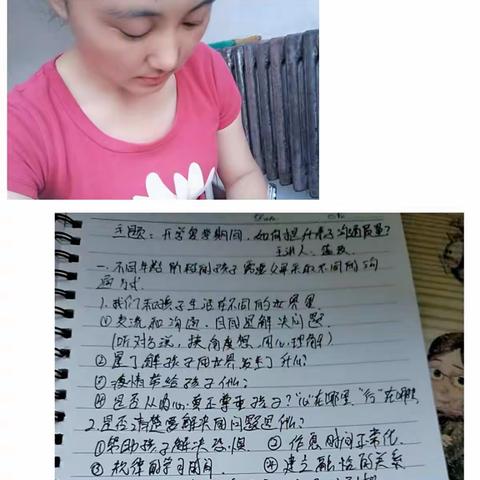 Date. No.
主题：开学复学期间，如何提升亲子沟通质量？
主讲人：
一.不同年龄阶段的孩子需要父母采取不同的沟
通方式.
1.我们和孩子生活在不同的世界里
①交流和沟通，目的是解决问题.
(听对方说，换角度想，用心理解)
②是了解孩子的世界发生了什么?
③疫情带给孩子什么;
④是否从内心真正尊重孩子?"心"在哪里"行"在哪里
2.是否清楚要解决的问题是什么?
①帮助孩子解决烦恼 ②作息时间正常化.
③规律的学习时间. ④建立融洽的关系